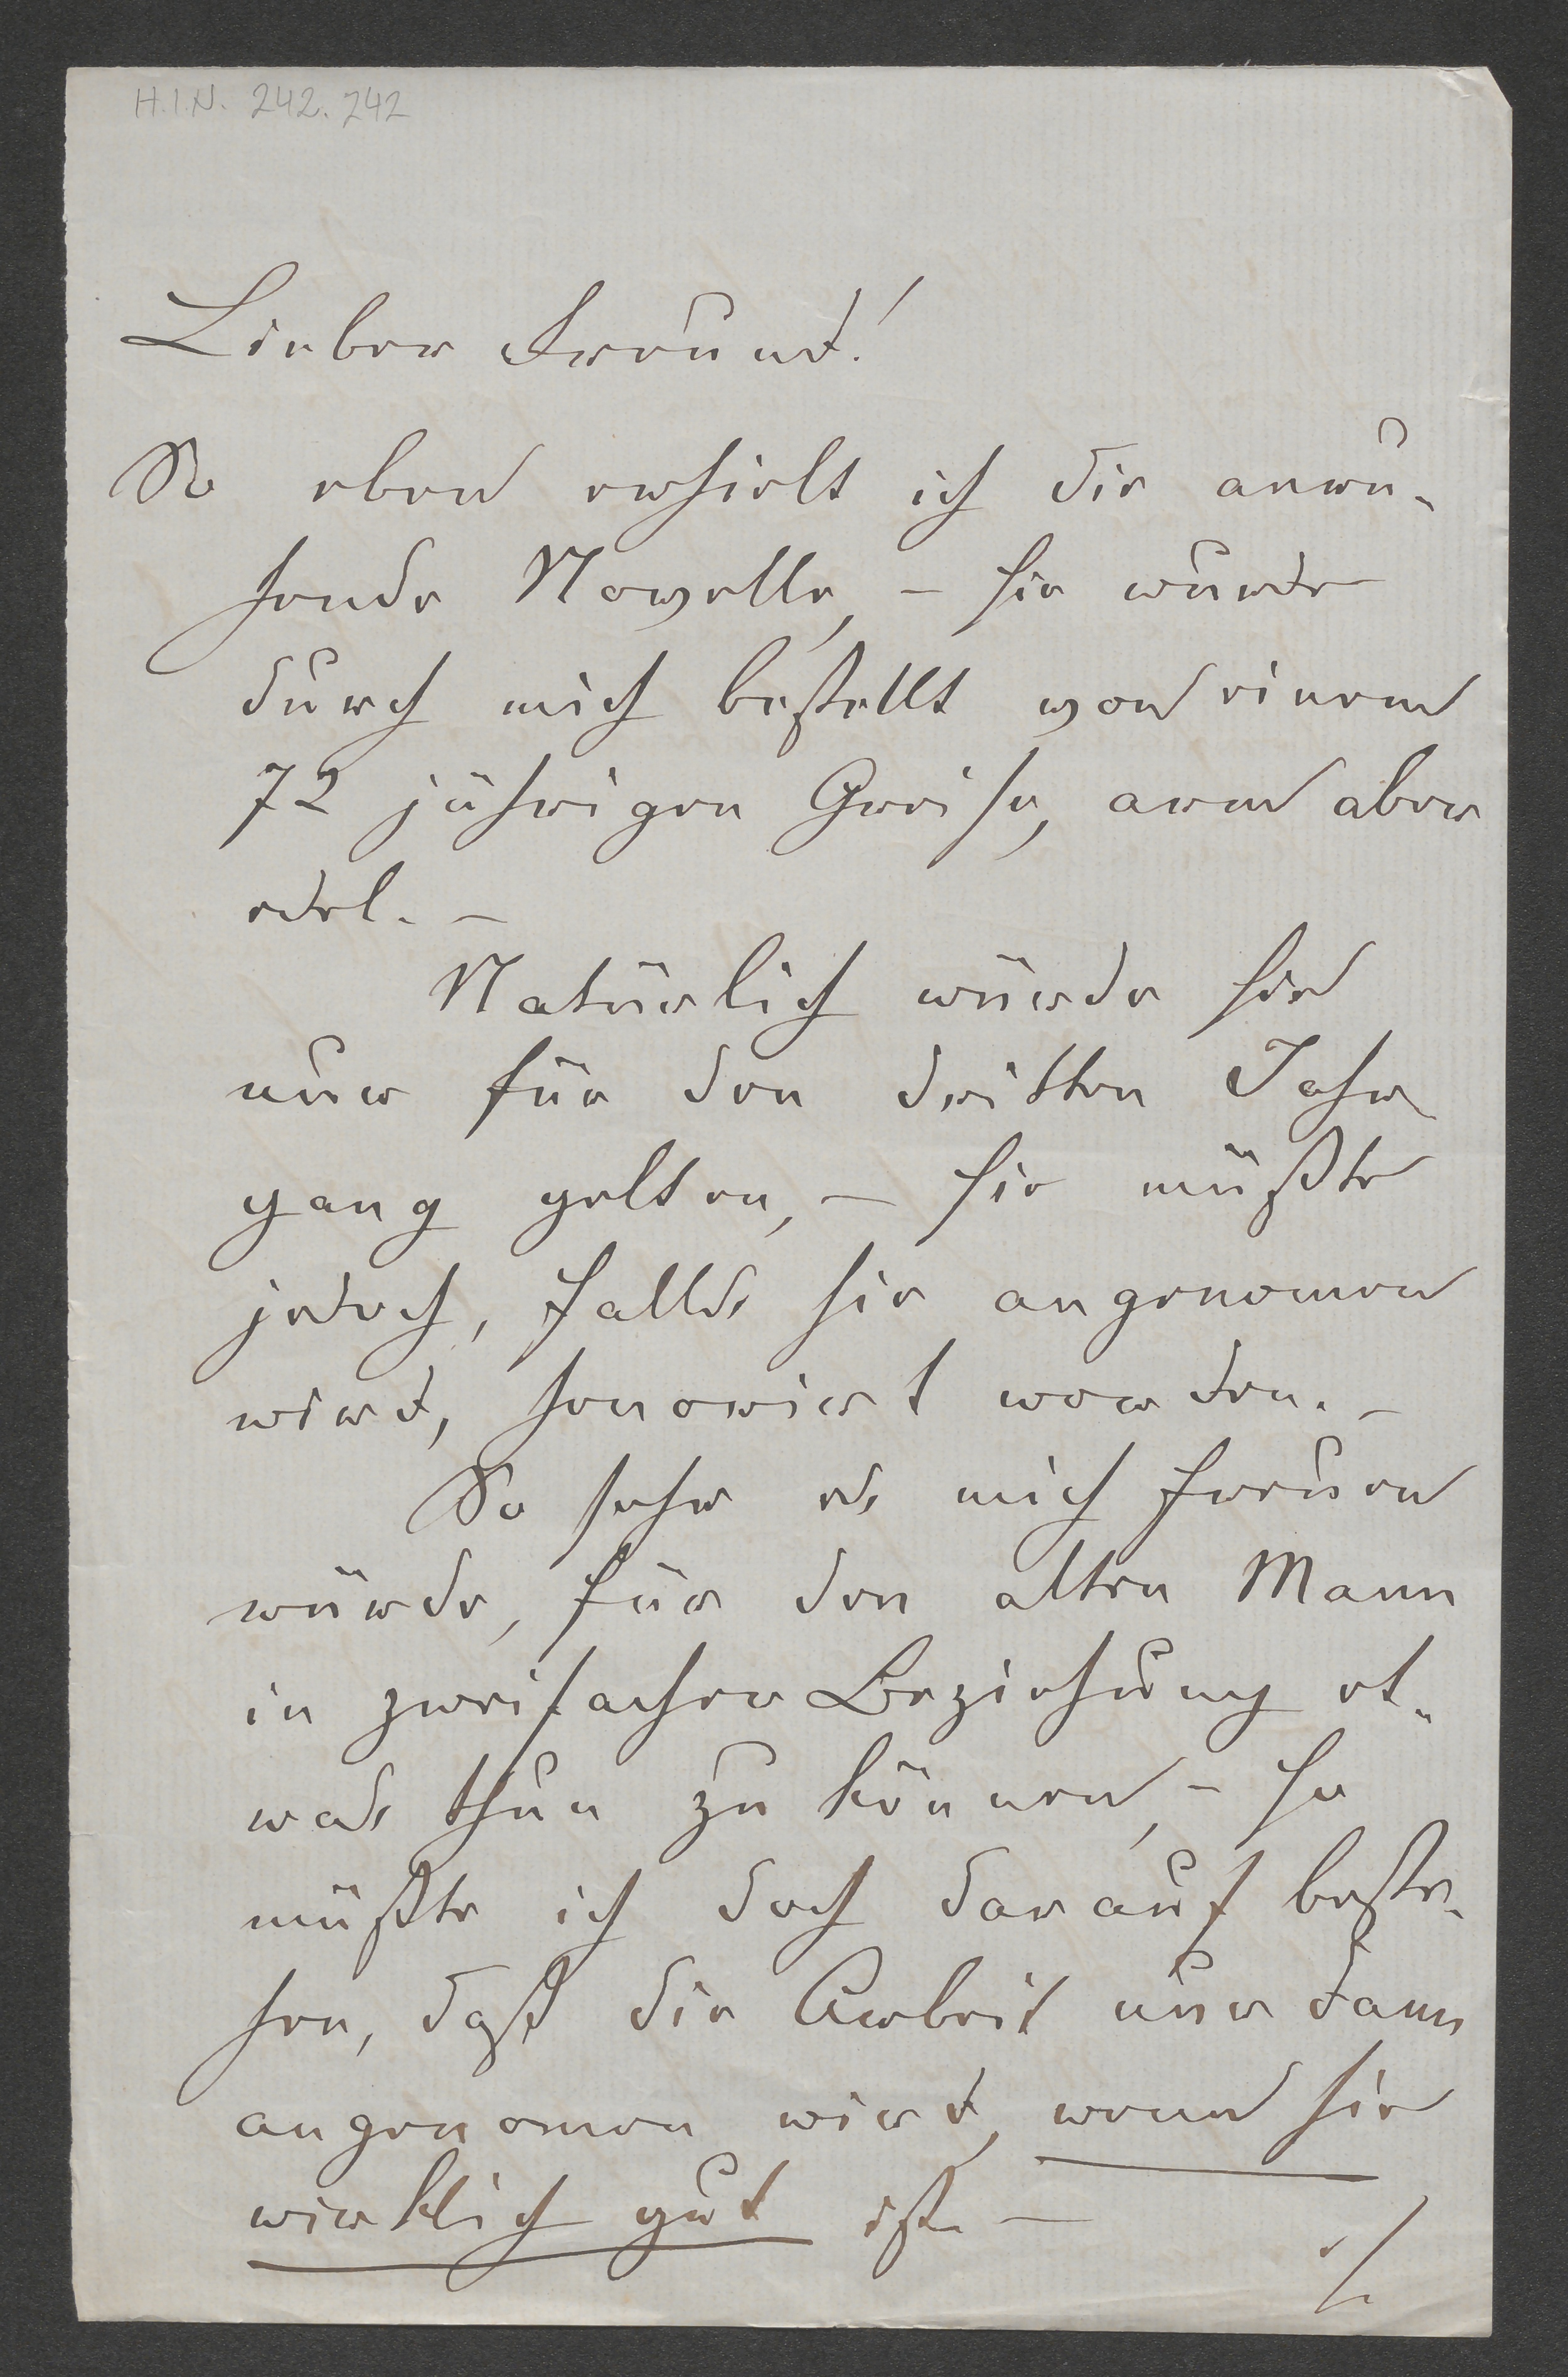 H.I.N. 242.242
Lieber Freund!
So eben erhielt ich die anru-
hende Novelle, – sie wurde
durch mich bestellt von einem
72 jährigen Greise, arm aber
edel. –
Natürlich würde sie
nur für den dritten Jahr-
gang gelten, – sie müßte
jedoch, falls sie angenomen
wird, honorirt werden. –
So sehr es mich freuen
würde, für den alten Mann
in zweifacher Beziehung et-
was thun zu können, – so
müßte ich doch darauf beste-
hen, daß die Arbeit nur dann
angenomen wird, wenn sie
wirklich gut ist. –
./.